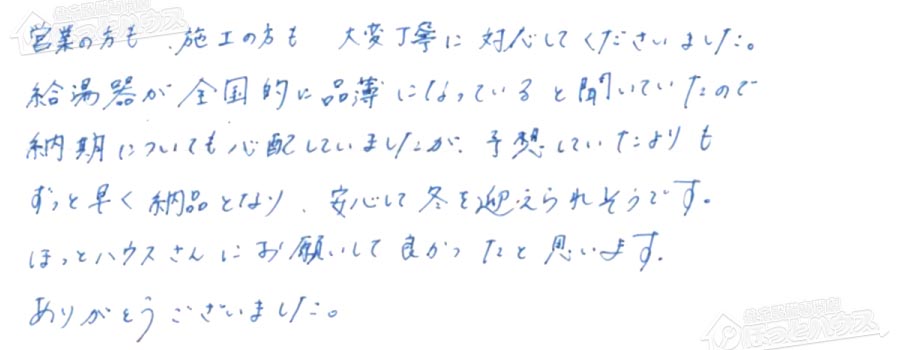 営業の方も、施工の方も 大変丁寧に対応してくださいました。
給湯器が全国的に品薄になっていると聞いていたので
納期についても心配していましたが、予想していたよりも
ずっと早く納品となり、安心して冬を迎えられそうです。
ほっとハウスさんにお願いして良かったと思います。
ありがとうございました。
ほっとハウス